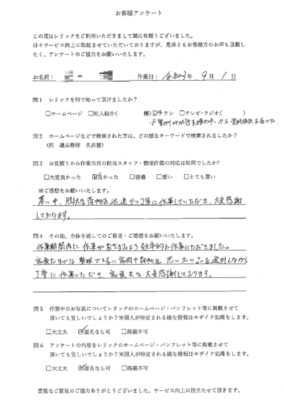 お客様アンケート
この度はレリックをご利用いただきまして誠に有難うございました。
日々サービス向上に取組ませていただいておりますが、是非ともお客様方のお声も頂戴し
たく、アンケートのご協力をお願いいたします。
お名前: 作業日: 令和3年 9月 1日
問1 レリックを何で知って頂けましたか?
□ホームページ □知人紹介( 様) □チラシ □テレビ・ラジオ( )
問2 ホームページなどで検索された方は、どの様なキーワードで検索されましたか?
(例 遺品整理 名古屋)
問3 お見積りから作業当日の担当スタッフ・整理作業の対応は如何でしたか?
□大変良かった □良かった □普通 □悪い □とても悪い
※ご感想をお願いいたします。
暑い中、膨大な荷物を迅速かつ丁寧に作業していただき、大変感謝
しております。
問4 その他、全体を通してのご意見・ご感想をお願いいたします。
作業期間内に作業が出来るよう効率的に作業いただきました。
丁寧に作業いただき、大変感謝しております。
問5 作業中のお写真についてレリックのホームページ・パンフレット等に掲載させて
頂いても宜しいでしょうか?※個人が特定される様な情報はモザイク処理をします。
□大丈夫 □匿名なら可 □掲載不可
問6 アンケートの内容をレリックのホームページ・パンフレット等に掲載させて
頂いても宜しいでしょうか?※個人が特定される様な情報はモザイク処理をします。
□大丈夫 □匿名なら可 □掲載不可
貴重なご意見のご協力ありがとうございました。サービス向上に役立たせて頂きます。